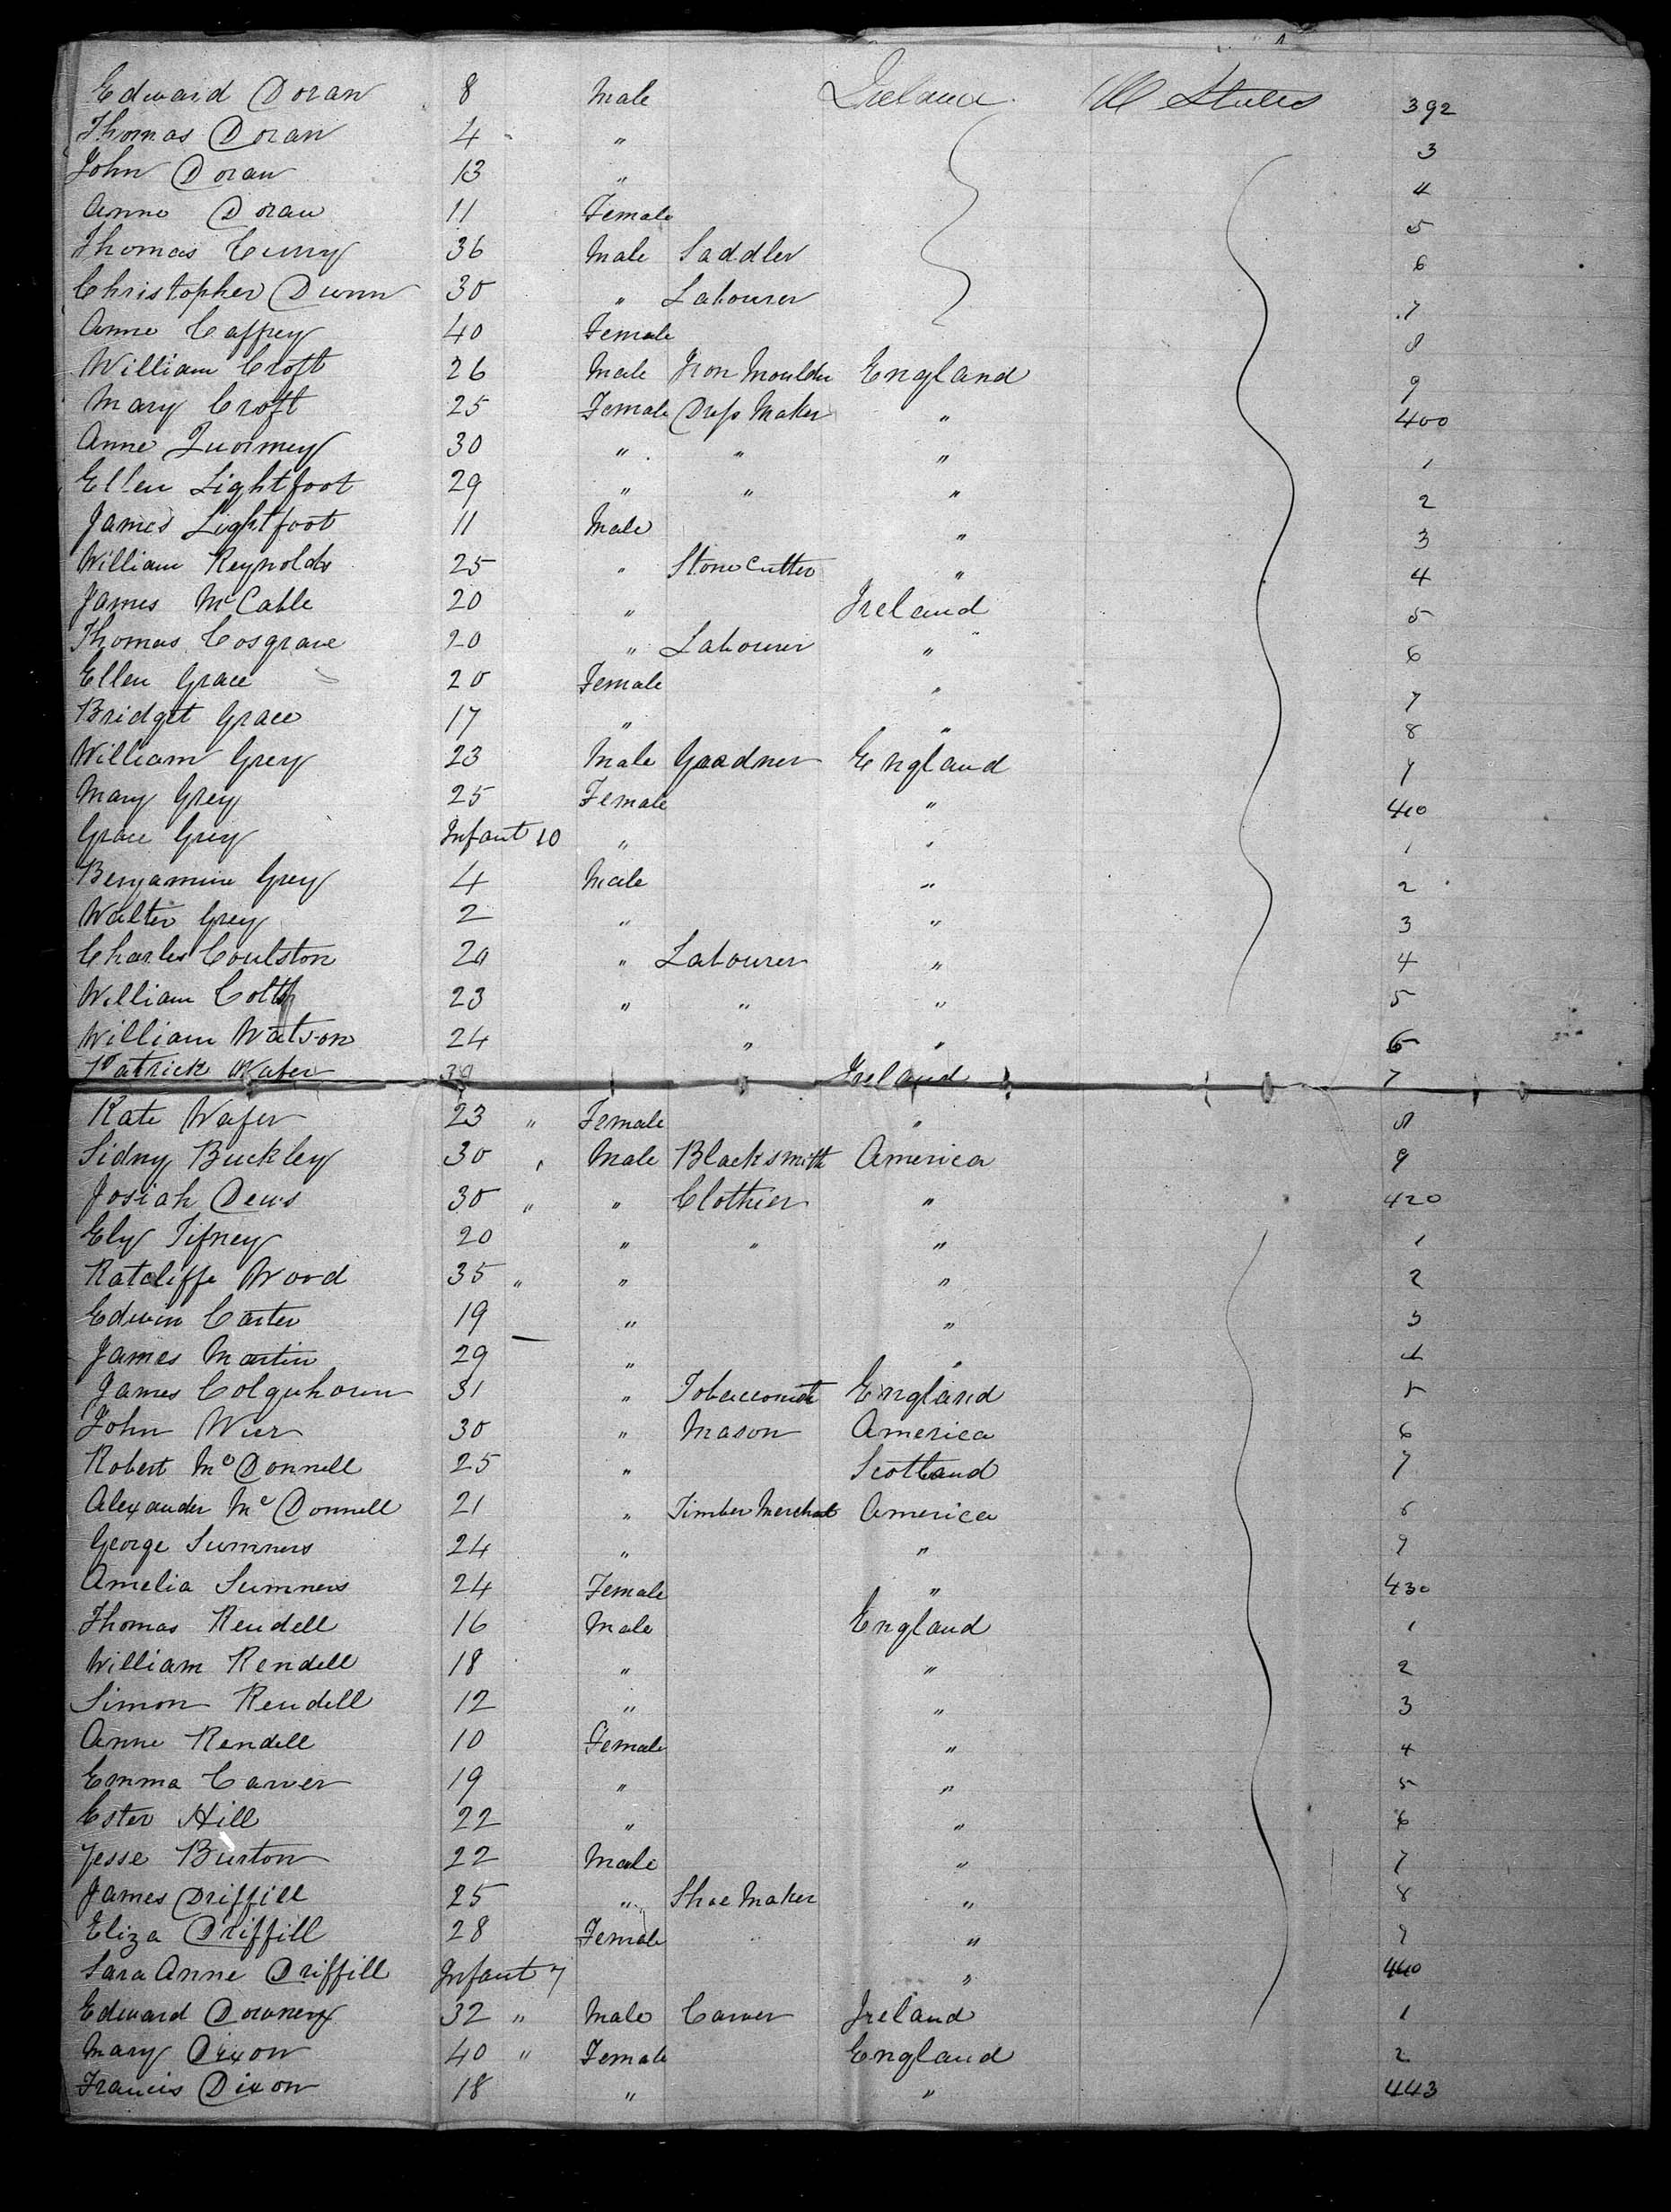 Edward Doran 8 Male Ireland U States 392
Thomas Doran 4 " 3
John Doran 13 " 4
Anne Doran 11 Female 5
Thomas Curry 36 Male Saddler 6
Christopher Dunn 30 " Labourer 7
Anne Caffrey 40 Female 8
William Croft 26 Male Iron Moulder England 9
Mary Croft 25 Female Dress Maker " 400
Anne 30 " " " 1
Ellen Lightfoot 29 " " " 2
James Lightfoot 11 Male " 3
William Reynolds 25 " Stone Cutter " 4
James McCable 20 " Ireland 5
Thomas Cosgrave 20 " Labourer " 6
Ellen Grace 20 Female " 7
Bridget Grace 17 " " 8
William Grey 23 Male Gaadner England 9
Mary Grey 25 Female " 410
Grace Grey Infant 10 " " 1
Benjamin Grey 4 Male " 2
Walter Grey 2 " " 3
Charles Coulston 20 " Labourer " 4
William 23 " " " 5
William Watson 24 " " 6
Patrick Wafer 30 Ireland 7
Kate Wafer 23 " Female " 8
Sidny Buckley 30 " Male Blacksmith America 9
Josiah Dews 30 " " Clothier " 420
Ely Tifney 20 " " " 1
Ratcliffe Wood 35 " " " 2
Edwin Carter 19 " " 3
James Martin 29 " " 4
James Colquhoun 31 " Tobacconist England 5
John Wier 30 " Mason America 6
Robert McDonnell 25 " Scotland 7
Alexander McDonnell 21 " Timber Merchat America 8
George Sumners 24 " " 9
Amelia Sumners 24 Female " 430
Thomas Rendell 16 Male England 1
William Rendell 18 " " 2
Simon Rendell 12 " " 3
Anne Rendell 10 Female " 4
Emma Carver 19 " " 5
Ester Hill 22 " " 6
Jesse Burton 22 Male " 7
James Driffill 25 " Shoe Maker " 8
Eliza Driffill 28 Female " 9
Sara Anne Driffill Infant 7 " 440
Edward Downey 32 " Male Carver Ireland 1
Mary Dixon 40 " Female England 2
Francis Dixon 18 " " 443